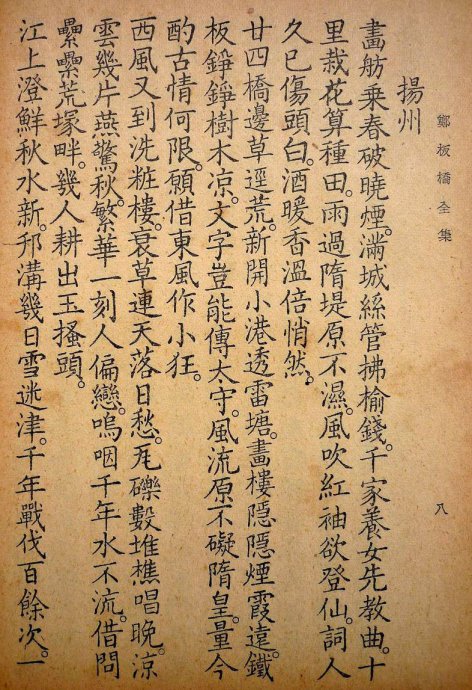 鄭板橋全集
八
揚州
畫舫乘春破曉煙。滿城絲管拂榆錢。千家養女先教曲。十
里栽花算種田。雨過隋堤原不濕。風吹紅袖欲登仙。詞人
久已傷頭白。酒暖香溫倍悄然。
廿四橋邊草逕荒。新開小港透雷塘。畫樓隱隱煙霞遠。鐵
板錚錚樹木涼。文字豈能傳太守。風流原不礙隋皇。量今
酌古情何限。願借東風作小狂。
西風又到洗粧樓。衰草連天落日愁。瓦礫數堆樵唱晚。涼
雲幾片燕驚秋。繁華一刻人偏戀。嗚咽千年水不流。借問
纍纍荒塚畔。幾人耕出玉搔頭。
江上澄鮮秋水新。邗溝幾日雪迷津。千年戰伐百餘次。一